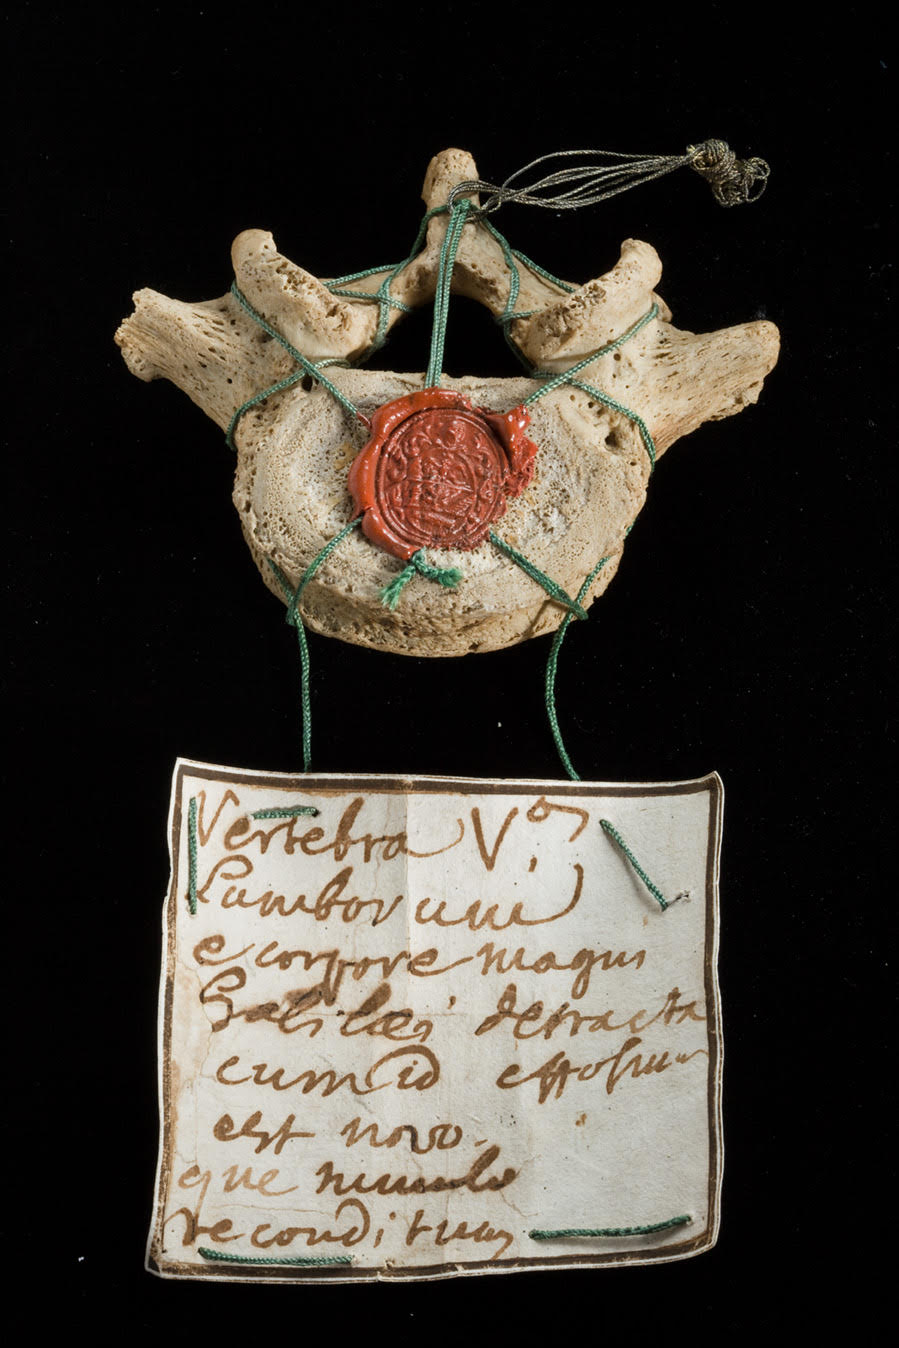 Vertebra V.a
Lumborum
e corpore magni
Galilæi detracta
cum id effossum
est novo-
que tumulo
reconditum